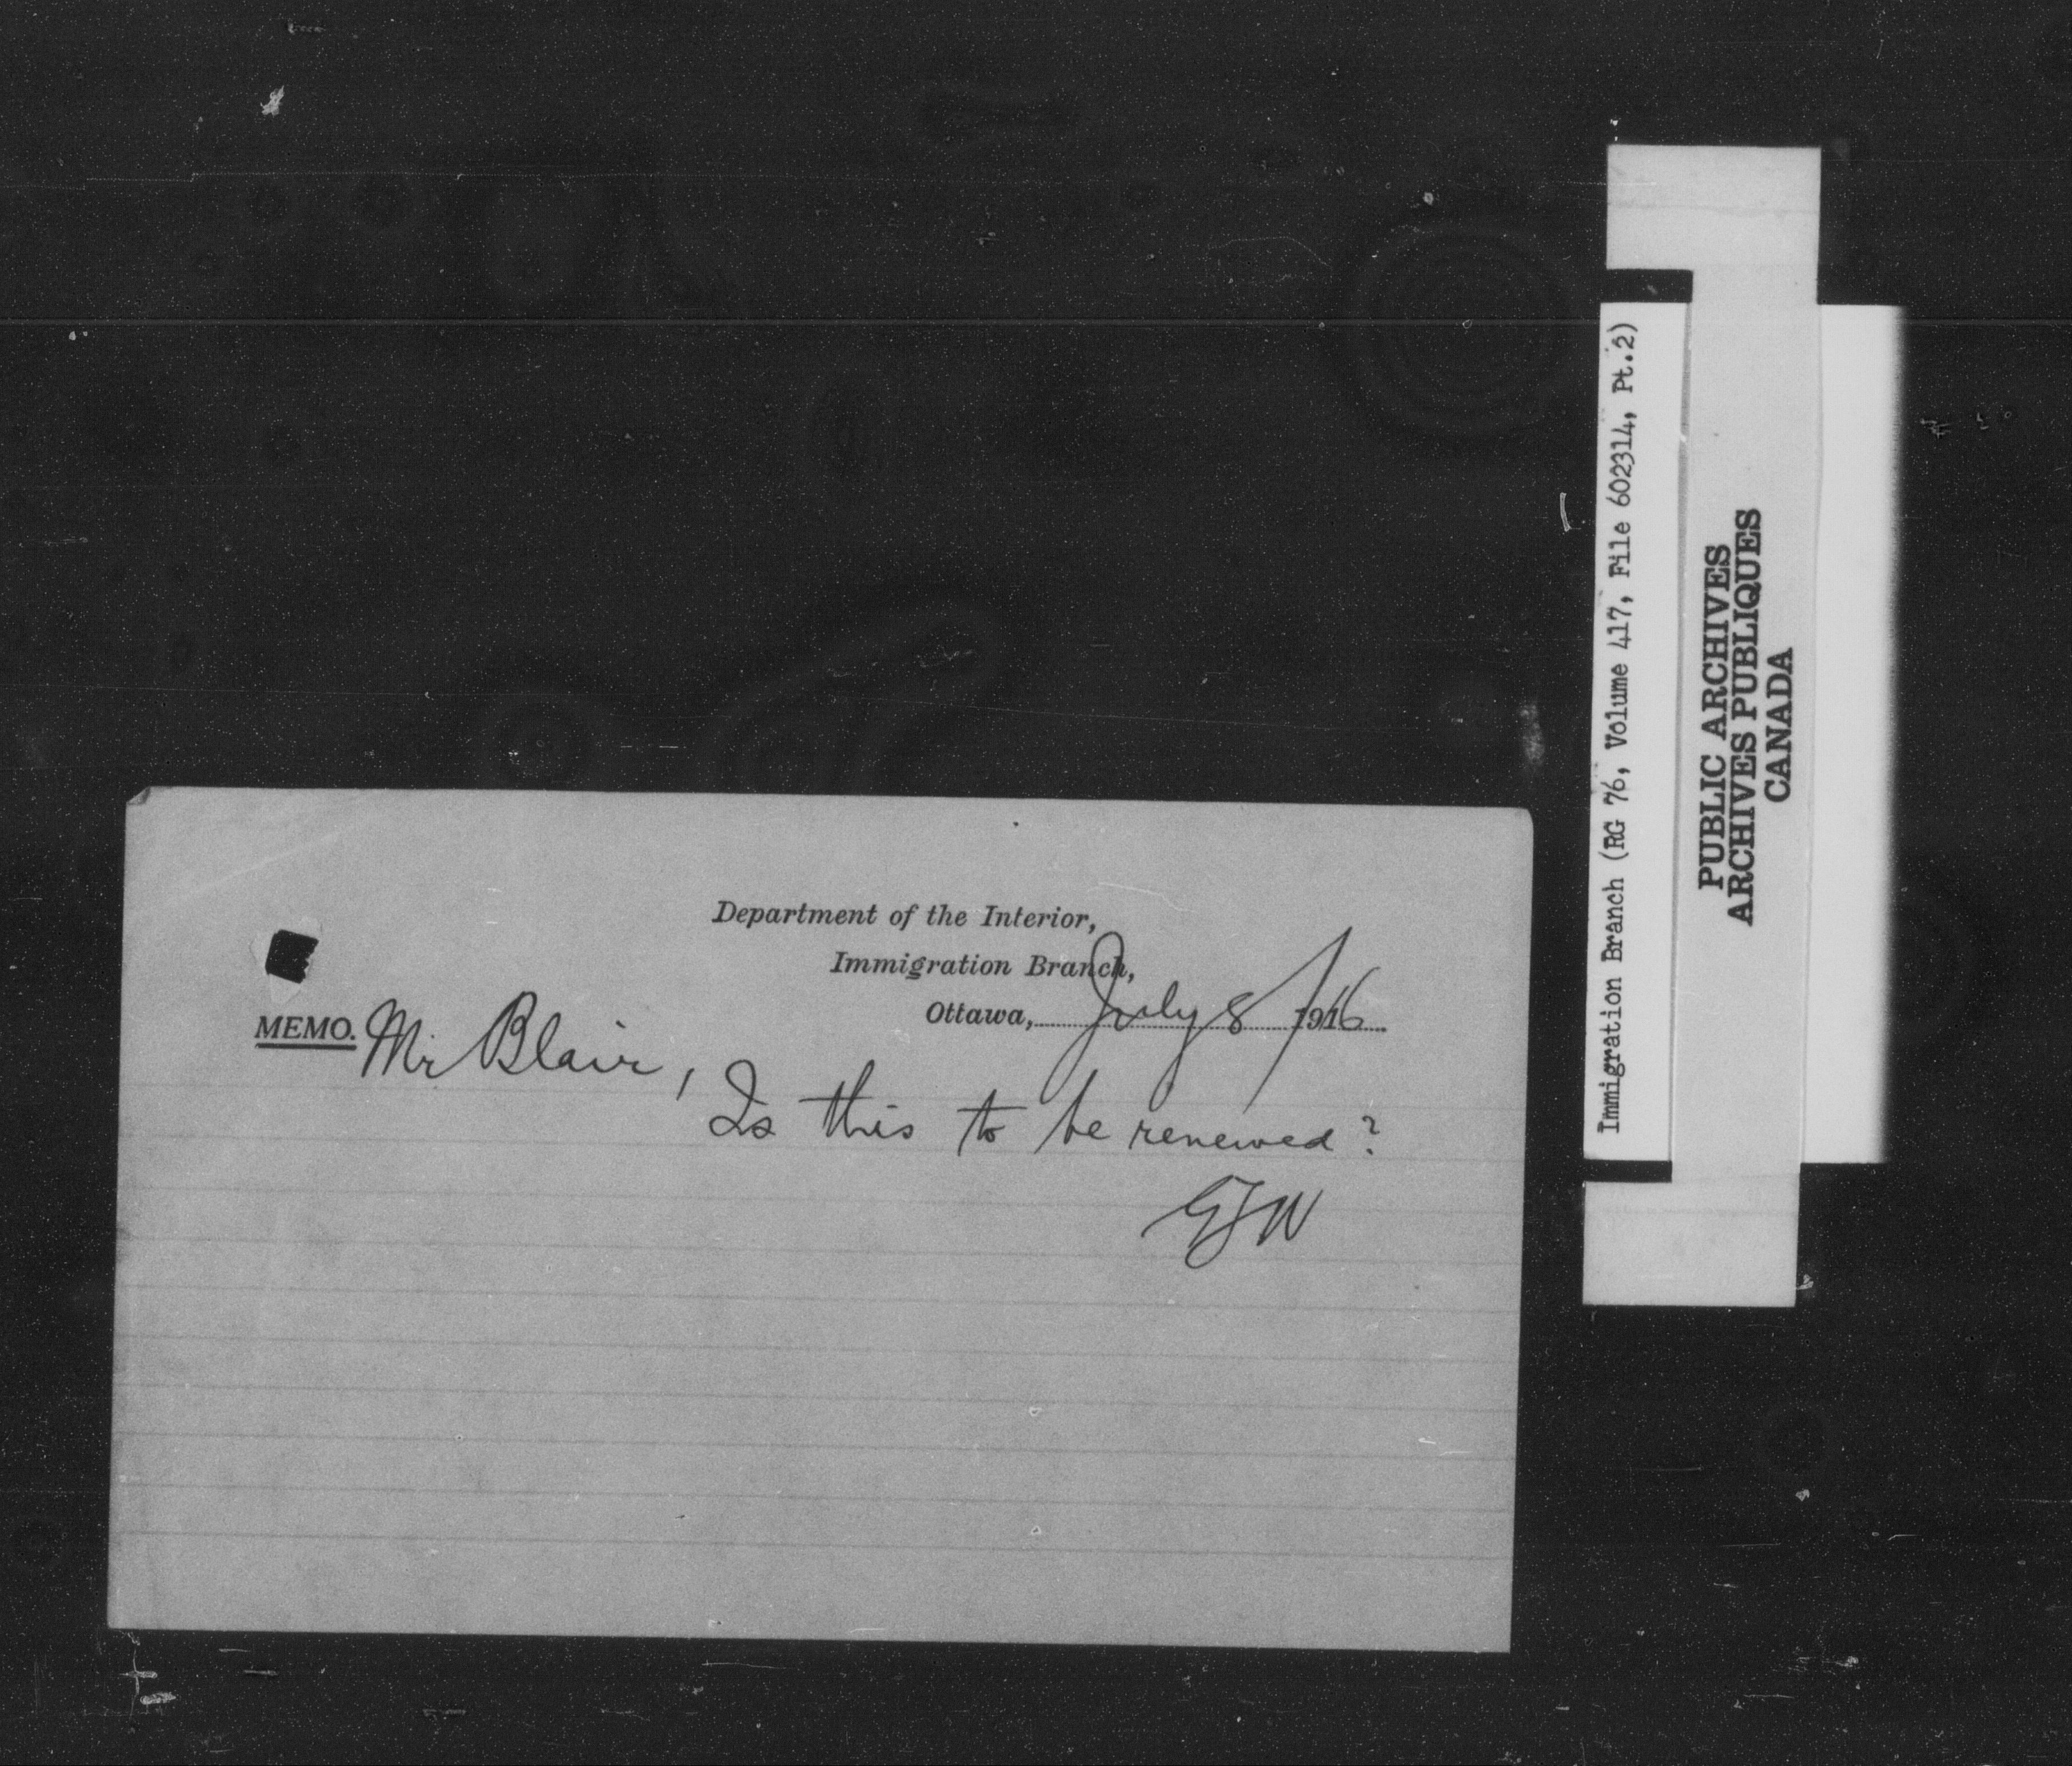 Department of the Interior,
Immigration Branch,
Ottawa, July 8 / 1916
MEMO. Mr Blair,
Is this to be renewed?
Immigration Branch (RG 76, Volume 417, File 602314, Pt.2)
PUBLIC ARCHIVES
ARCHIVES PUBLIQUES
CANADA